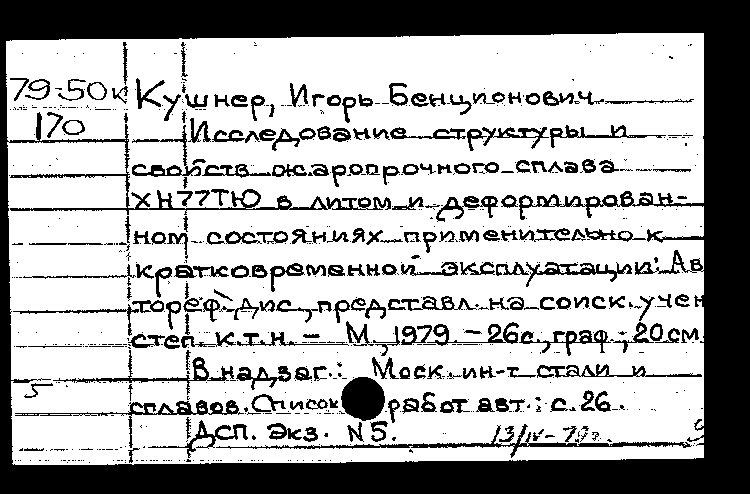 79-50к Кушнер, Игорь Бенционович
170 Исследование структуры и
свойств жаропрочного сплава
ХН77ТЮ в литом и деформирован-
ном состояниях применительно к
кратковременной эксплуатации: Ав
тореф. дис., представл. на соиск. учен
степ. к.т.н. – М., 1979. – 26с., граф.; 20см
В надзаг.: Моск. ин-т стали и
5 сплавов. Список работ авт.: с. 26.
ДСП. Экз. N 5. 13/IV-79г.